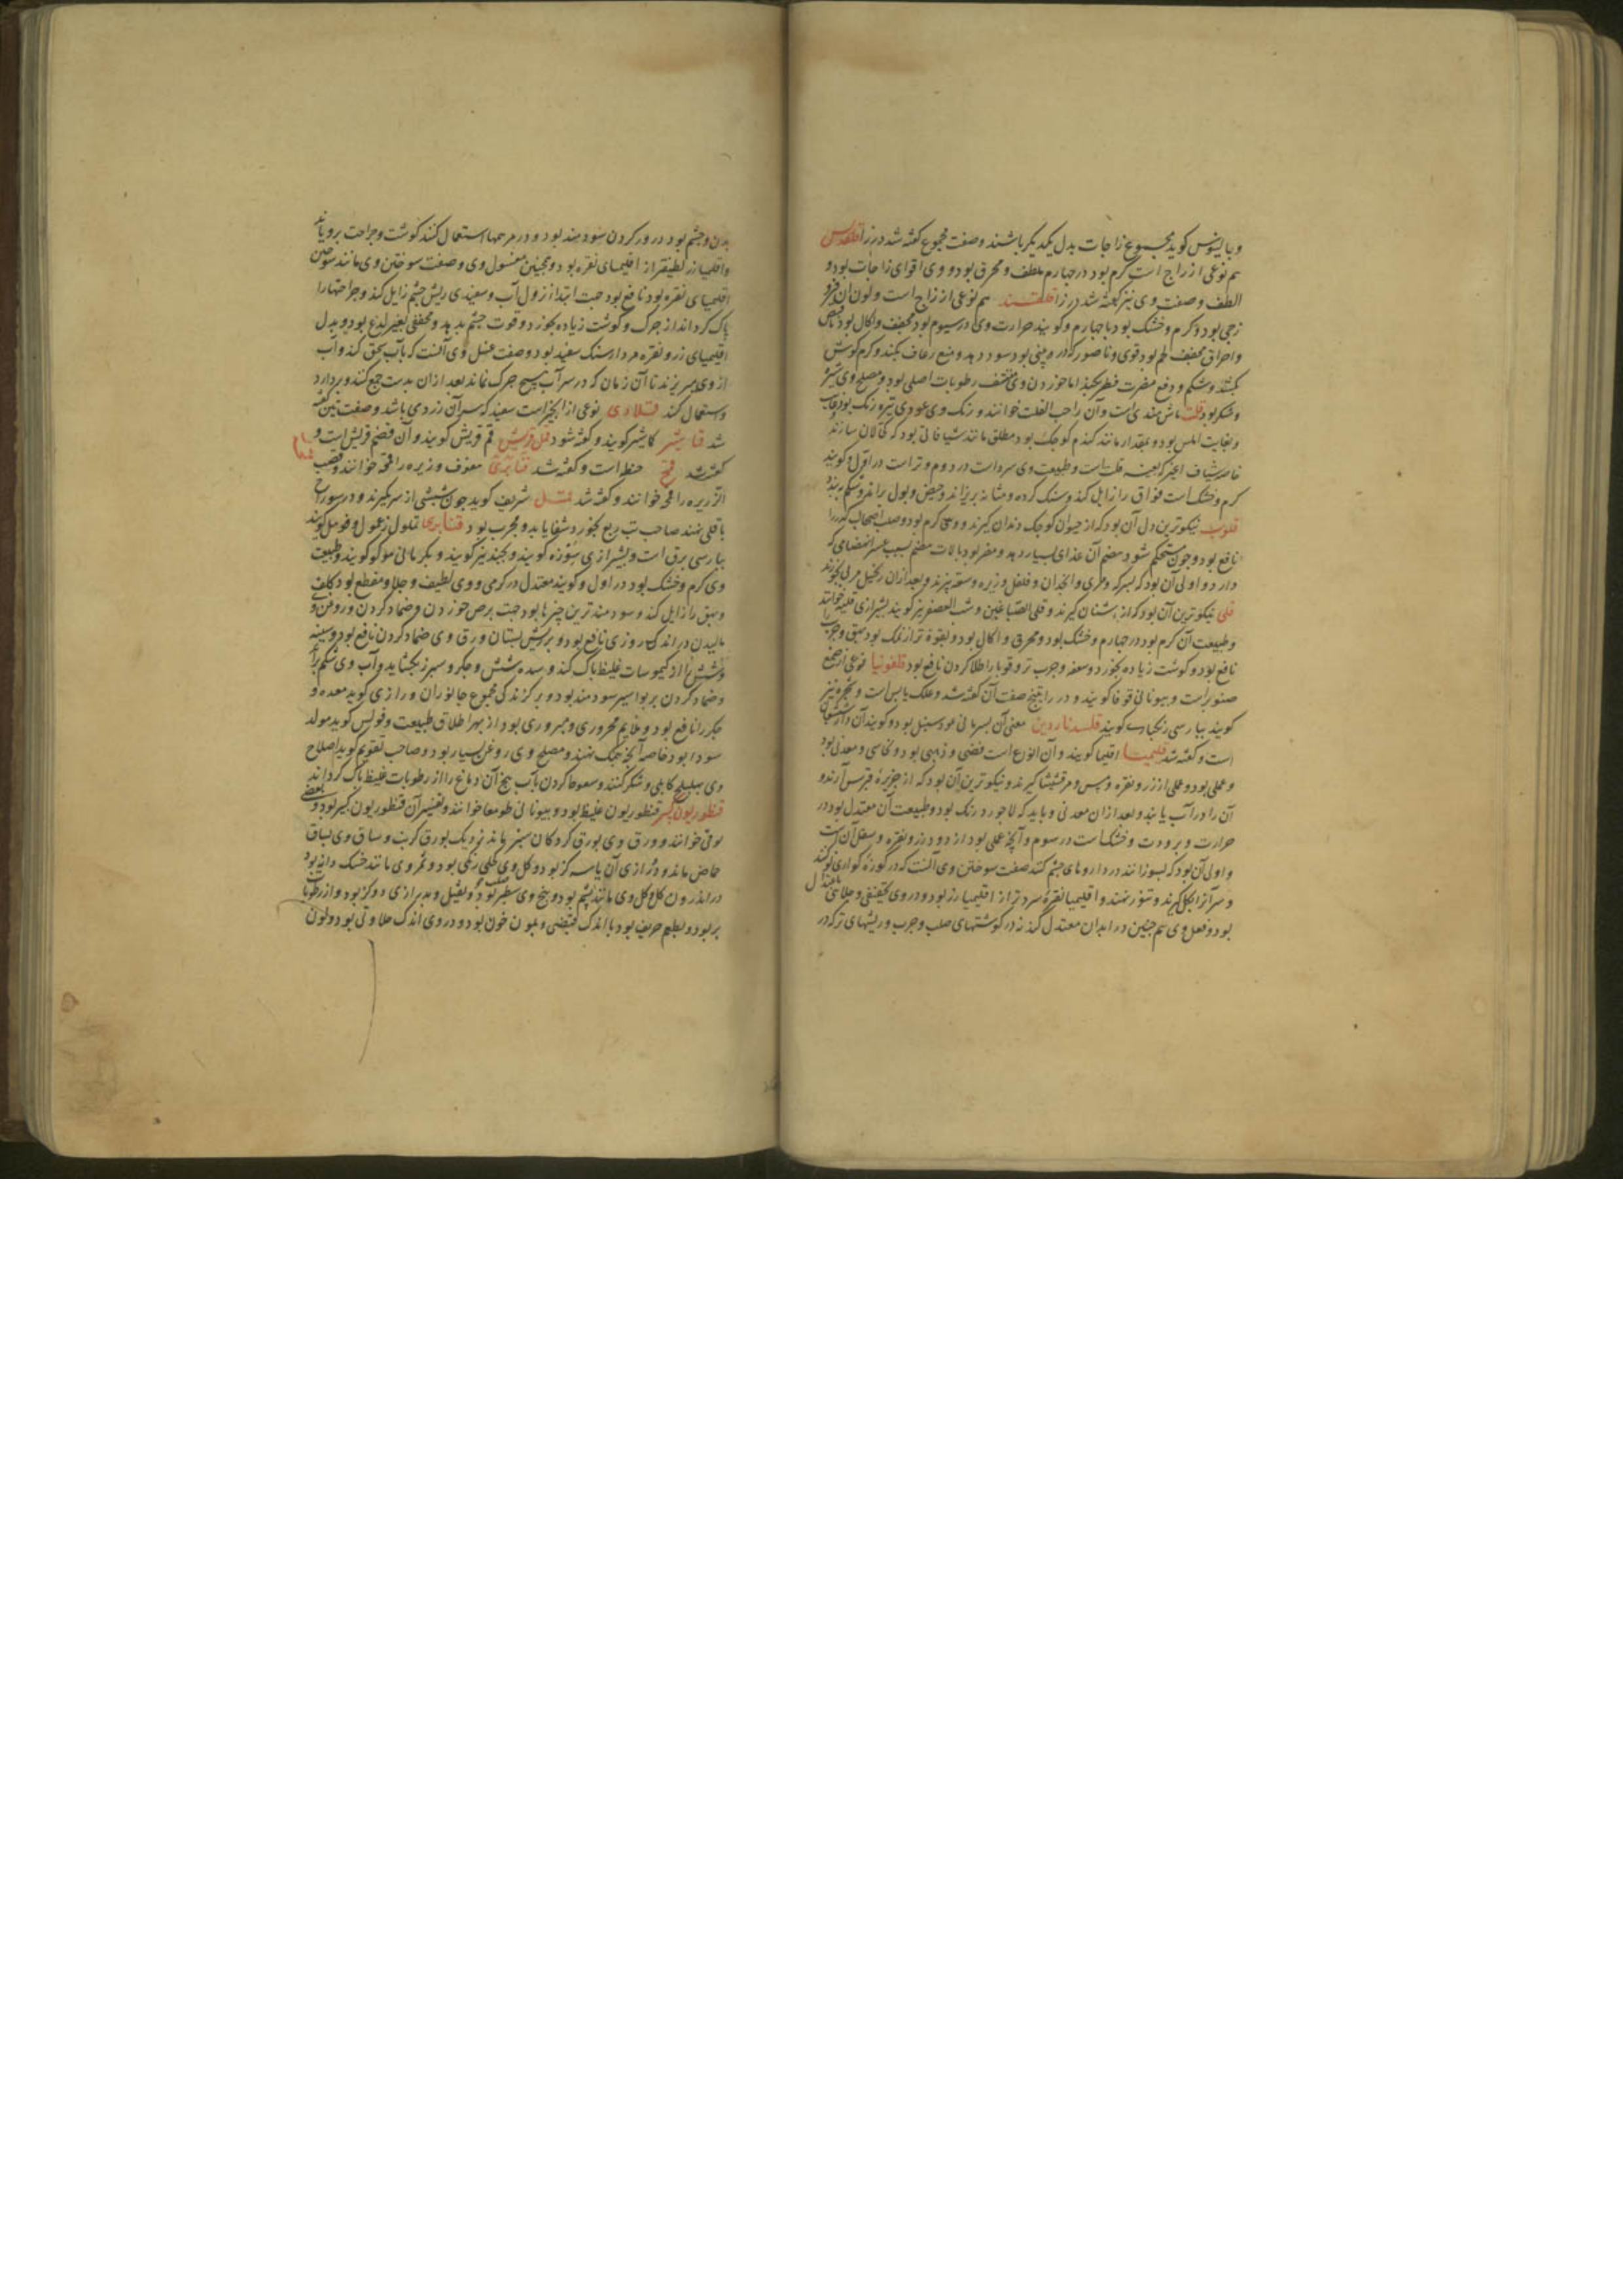 و جالینوس کوید مجموع زاجات بدل یکدیکر باشند و صفت مجموع کفته شد در زا قلقدیس
هم نوعی از زاج است کرم بود در چهارم ملطف و محرق بود و وی اقوای زاجات بود و
الطف و صفت وی نیز کفته شد در زا قلقند هم نوعی از زاج است و لون آن
زجی بود و کرم و خشک بود تا چهارم و کویند حرارت وی در سیوم بود مجفف و اکال بود
و احراق مجفف لحم بود قوی و ناصور که در بینی بود سود دهد و منع رعاف بکند و کرم کوش
بکشد و شکم و دفع مضرت فطر بکند اما خوردن وی منشف رطوبات اصلی بود و مصلح وی شیر
و شکر بود قلت ماش هندی است و آن را حب القلت خوانند و رنک وی عودی تیره رنک بود
و بغایت املس بود و بمقدار مانند کندم کوچک بود مطلق مانند شیافاتی بود که کحالان سازند
خاصه شیاف اغبر که بعینه قلت است و طبیعت وی سرد است در دوم و تر است در اول و کویند
کرم و خشک است فواق را زایل کند و سنک کرده و مثانه بریزاند و حیض و بول براند و شکم ببندد
قلوب نیکوترین دل آن بود که از حیوان کوچک دندان کیرند و وی کرم بود و صلب اصحاب کد را
نافع بود و چون مستحکم شود هضم آن غذای بسیار دهد و مضر بود بآلات هضم بسبب عسر انهضامی که
دارد و اولی آن بود که بسرکه و مری و انجدان و فلفل و زیره و سعتر پزند و بعد از آن زنجبیل مربی بخورند
قلی نیکوترین آن بود که از اشنان کیرند و قلی الصباغین و شب العصفر نیز کویند بشیرازی قلیه خوانند
و طبیعت آن کرم بود در چهارم و خشک بود و محرق و اکال بود و بقوت تر از نمک بود بهق و جرب
نافع بود و کوشت زیاده بخورد و سعفه و جرب تر و قوبا را طلا کردن نافع بود قلفونیا نوعی از صمغ
صنوبر است و بیونانی قوفا کویند و در راتینج صفت آن کفته شد و علک یابس است و نیز
کویند بپارسی زنکباری کویند قلسدناردین معنی آن بسریانی عود سنبل بود و کویند آن
است و کفته شد قلیمیا اقلیما کویند و آن انواع است فضی و ذهبی بود و نحاسی و معدنی بود
و عملی بود و عملی از زر و نقره و مس و مرقشیشا کیرند و نیکوترین آن بود که از جزیره قبرس آرند و
آن را در آب یابند و بعد از آن معدنی و باید که لاجورد رنک بود و طبیعت آن معتدل بود در
حرارت و برودت و خشک است در سوم و آنچه عملی بود از دود زر و نقره و سفل آن
و اولی آن بود که بسوزانند در داروهای چشم کنند صفت سوختن وی آنست که در کوزه کواری
و سر آن را بکل کیرند و بتنور نهند و اقلیمیا نقره سردتر از اقلیمیا زر بود و در وی تجفیفی و جلائی باعتدال
بود و فعل وی هم چنین در ابدان معتدل کند نه در کوشتهای صلب و جرب و ریشهای تر که در
بدن و چشم بود در ور کردن سودمند بود و در مرهمها استعمال کنند کوشت و جراحت برویاند
و اقلیمیا زر لطیفتر از اقلیمیای نقره بود و همچنین مغسول وی و صفت سوختن وی مانند سوختن
اقلیمیای نقره بود نافع بود جهت ابتدا نزول آب و سفیدی ریش چشم زایل کند و جراحتها را
پاک کرداند از چرک و کوشت زیاده بخورد و قوت چشم بدهد و مجففی بغیر لذع بود و بدل
اقلیمیای زر و نقره مردارسنک سفید بود و صفت غسل وی آنست که بآب سحق کند و آب
از وی میریزند تا آن زمان که در سر آب هیچ چرک نماند بعد از آن بدست جمع کنند و بردارد
و استعمال کنند قلادی نوعی از انجیر است سفید که سر آن زردی باشد و صفت تین کفته
شد قاشیر کاشیر کویند و کفته شود قمل قریش قم قریش کویند و آن قضم قریش است و
کفته شد قمح حنطه است و کفته شد قنابری معروف و زیره را خوانند و قصب
الذریره را قمحه خوانند و کفته شد قمل شریف کوید چون شپشی از سر بکیرند و در سوراخ
باقلی نهند صاحب تب ربع بخورد شفا یابد و مجرب بود قنابری تملول زعلول و قوملل کویند
بپارسی برق است و بشیرازی سوزه کویند و بجند نیز کویند و بکرمانی موکو کویند و طبیعت
وی کرم و خشک بود در اول و کویند معتدل در کرمی و وی لطیف و جلا و مقطع بود کلف
و بهق را زایل کند و سودمندترین چیزها بود جهت برص خوردن و ضماد کردن و روغن
مالیدن در اندک روزی نافع بود و بر ریش پستان ورق وی ضماد کردن نافع بود و سینه
و شش را از کیموسات غلیظ پاک کند و سده شش و جکر و سپرز بکشاید و آب وی شکم براند
و ضماد کردن بر بواسیر سودمند بود و بر کزندکی مجموع جانوران و رازی کوید معده و
جکر را نافع بود و ملایم محروری و مبروری بود از بهر اطلاق طبیعت و فولس کوید مولد
سودا بود خاصه آنچه بنمک نهند و مصلح وی روغن بسیار بود و صاحب تقویم کوید اصلاح
وی بهلیله کابلی و شکر کنند و سعوط کردن بآب بیخ آن دماغ را از رطوبات غلیظ پاک کرداند
قنطوریون کبیر قنطوریون غلیظ بود و بیونانی طومغا خوانند و تفسیر آن قنطوریون کبیر بود و بعضی
لوفی خوانند و ورق وی بورق کردکان سبز ماند نزدیک بورق کرنب و ساق وی بساق
حماض ماند و درازی آن یا سه کز بود و کل وی کحلی رنکی بود و ثمر وی مانند خسک دانه بود
در اندرون کل و کل وی مانند پشم بود و بیخ وی سطبر بود صلب و ثقیل و بدرازی دو کز بود و از رطوبات
پر بود و بطعم حریف بود با اندک قبضی و بلون خون بود و در وی اندک حلاوتی بود و لون